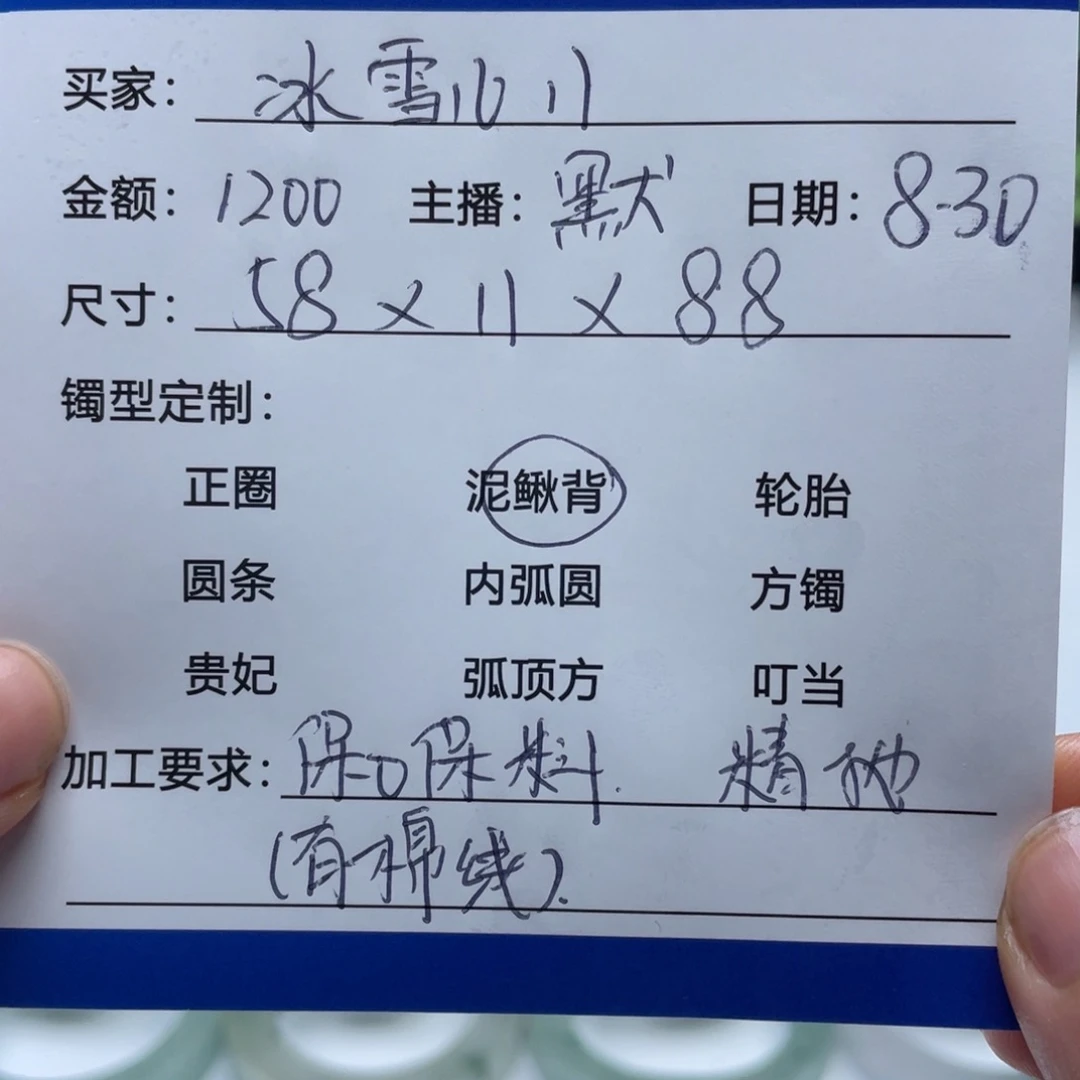 买家： 冰雪
金额： 1200 主播： 默 日期： 8-30
尺寸： 58 × 11 × 88
镯型定制：
正圈 泥鳅背 轮胎
圆条 内弧圆 方镯
贵妃 弧顶方 叮当
加工要求： 保口保料. 精抛
(有棉线).